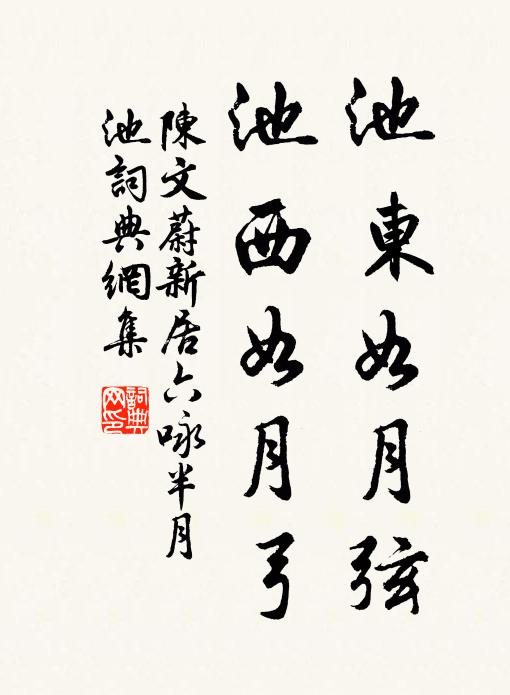 池東如月弦
池西如月弓
陳文蔚新居六咏半月
池詞典網集
詞典
网印